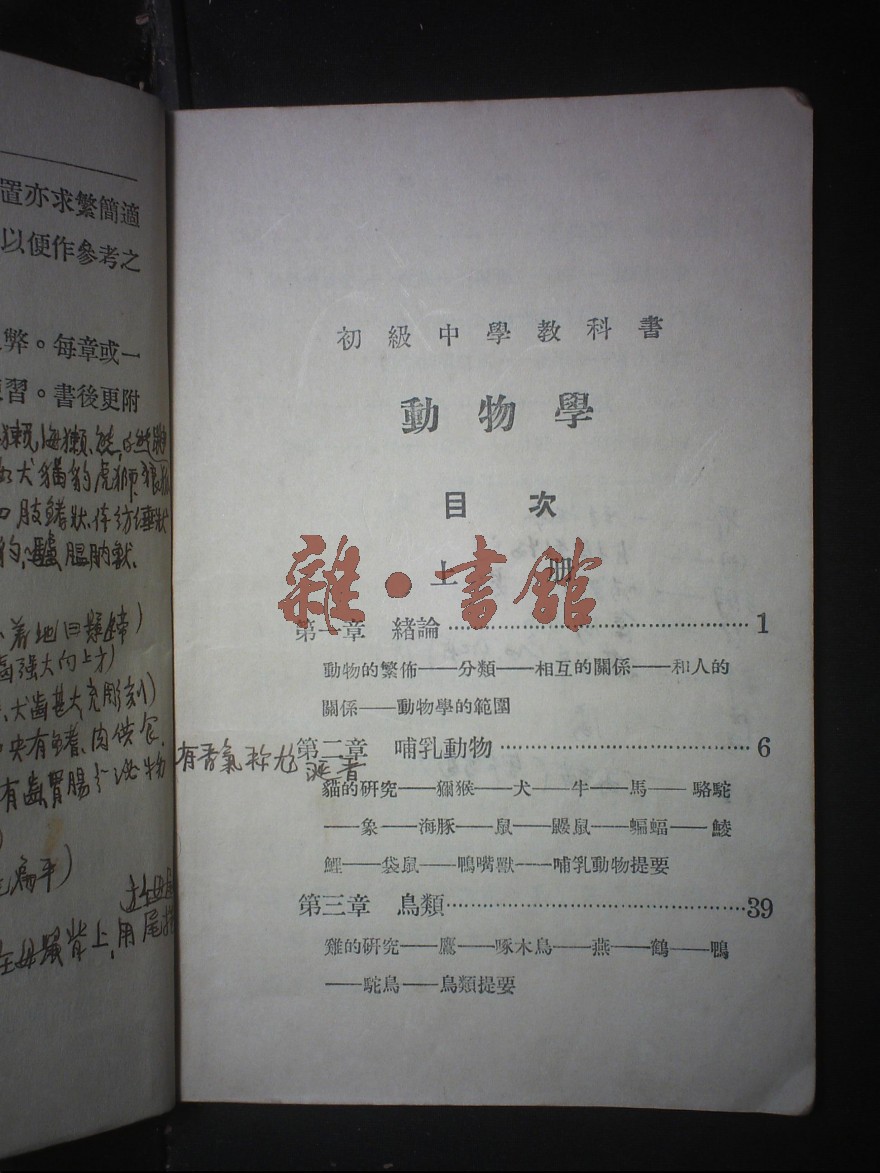 置亦求繁簡適
以便作參考之
弊。每章或一
習。書後更附
犬貓豹虎獅
肢鰭狀,体紡缍狀
膃肭獸.
着地
齒强大向上方)
犬齒甚大,充彫刻)
央有鳍、肉供食、
有齒胃腸分泌物
扁平)
背上,用尾
初級中學教科書
動物學
目次
上册
雜·書館
第一章 緒論 1
動物的繁佈——分類——相互的關係——和人的
關係——動物學的範圍
有香氣称尤
第二章 哺乳動物 6
貓的研究——獼猴——犬——牛——馬——駱駝
——象——海豚——鼠——鼹鼠——蝙蝠——鯪
鯉——袋鼠——鴨嘴獸——哺乳動物提要
第三章 鳥類 39
雞的研究——鷹——啄木鳥——燕——鶴——鴨
——駝鳥——鳥類提要